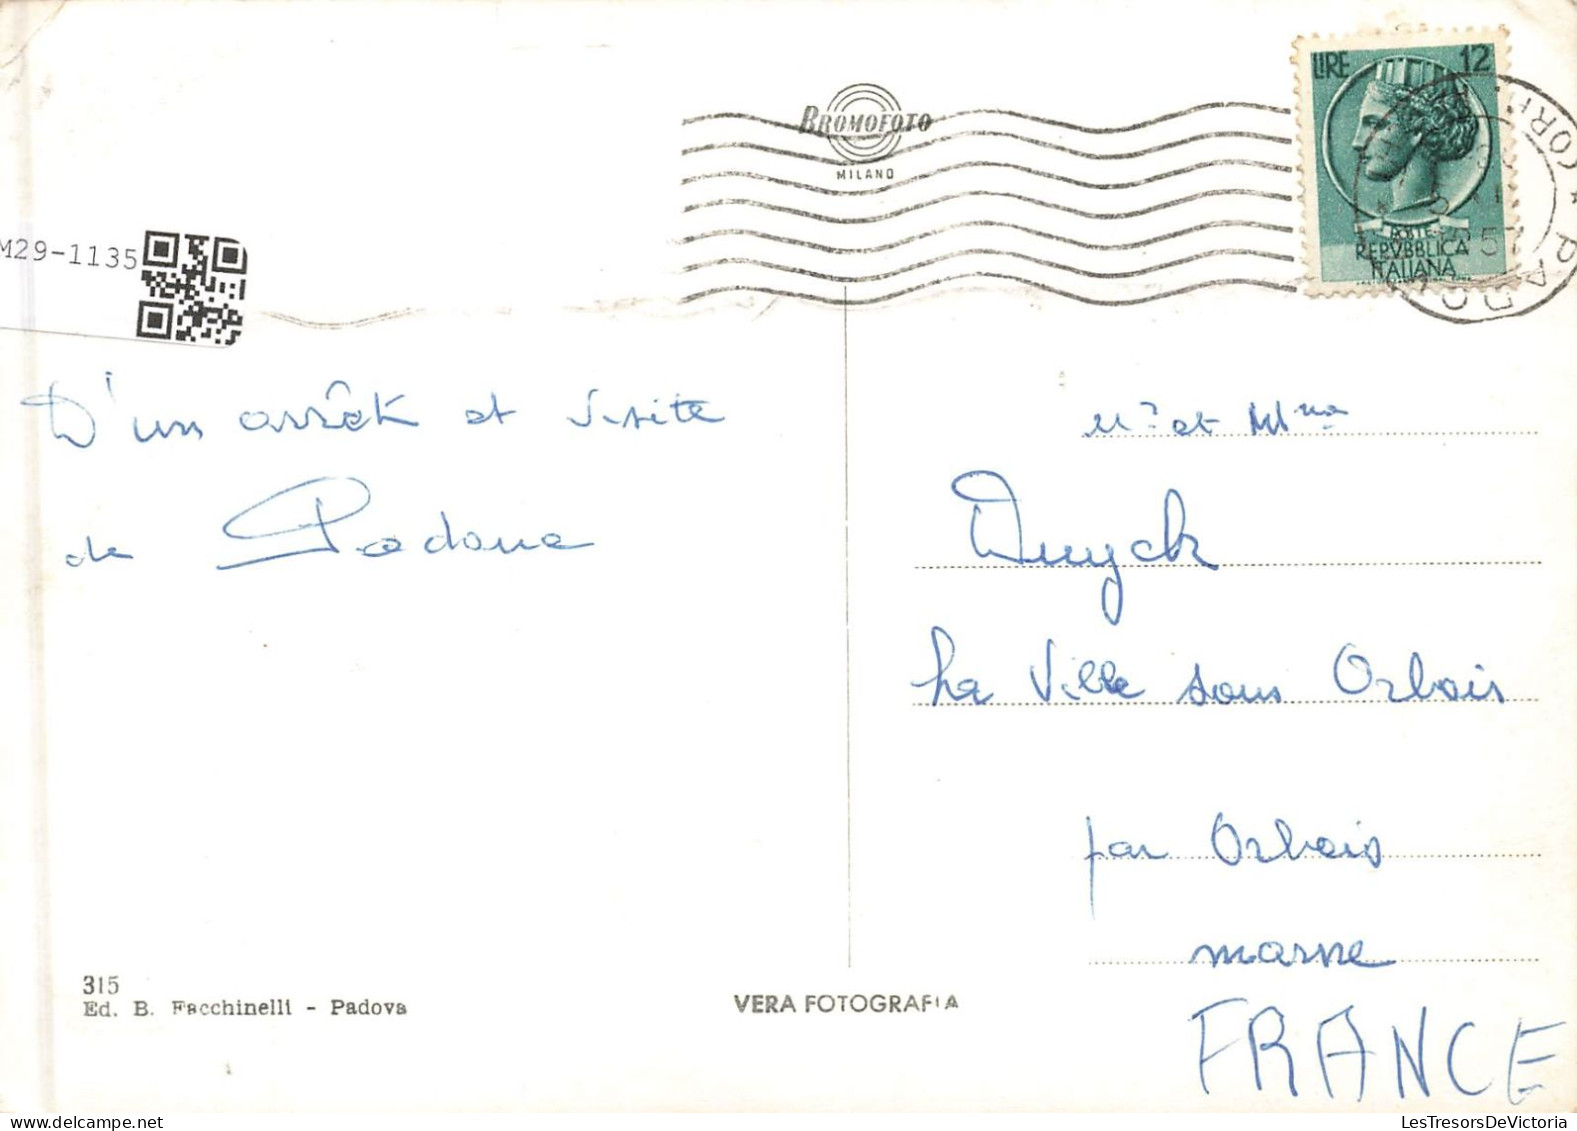 LIRE 12
BROMOFOTO
MILANO
POSTE
REPVBBLICA
ITALIANA
M29-1135
D'un arrêt et visite
de Padoue
Mr et Mme
Duyck
La Ville sous Orbais
par Orbais
marne
FRANCE
315
Ed. B. Facchinelli - Padova
VERA FOTOGRAFIA
LesTresorsDeVictoria